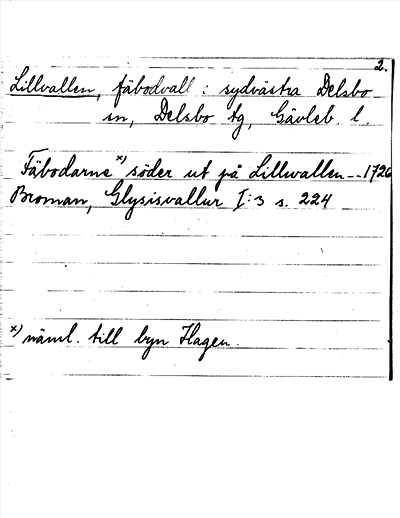 2.
Lillvallen, fäbodvall : sydvästra Delsbo
sn, Delsbo tg, Gävleb. l.
Fäbodarne x) söder ut på Lillwallen -- 1726
Broman, Glysisvallur I:3 s. 224
x) näml. till byn Hagen.